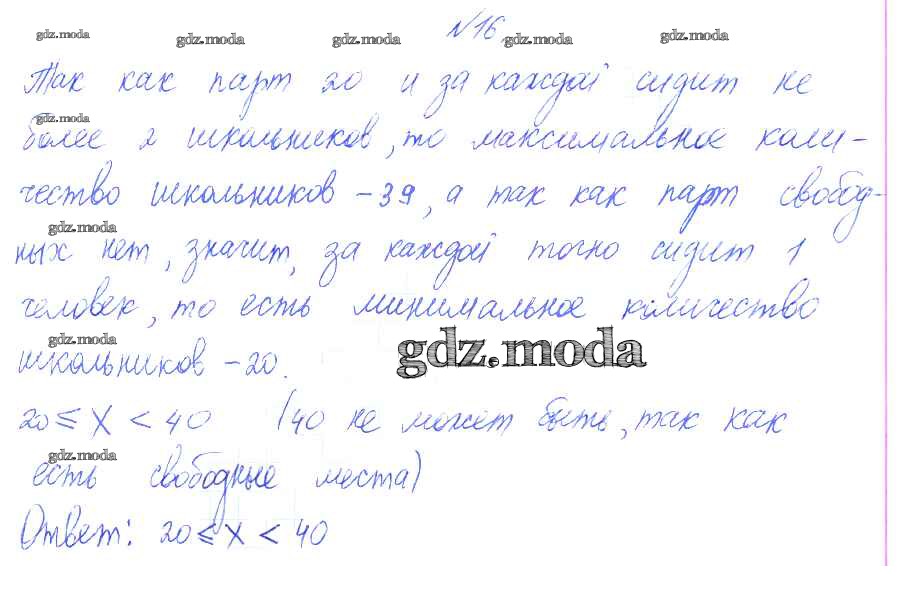 №16.
gdz.moda gdz.moda gdz.moda gdz.moda gdz.moda
Так как парт 20 и за каждой сидит не
gdz.moda
более 2 школьников, то максимальное коли-
чество школьников -39, а так как парт свобод-
gdz.moda
ных нет, значит, за каждой точно сидит 1
человек, то есть минимальное количество
gdz.moda
школьников -20.
gdz.moda
20 ≤ x < 40 (40 не может быть, так как
gdz.moda
есть свободные места)
Ответ: 20 ≤ x < 40